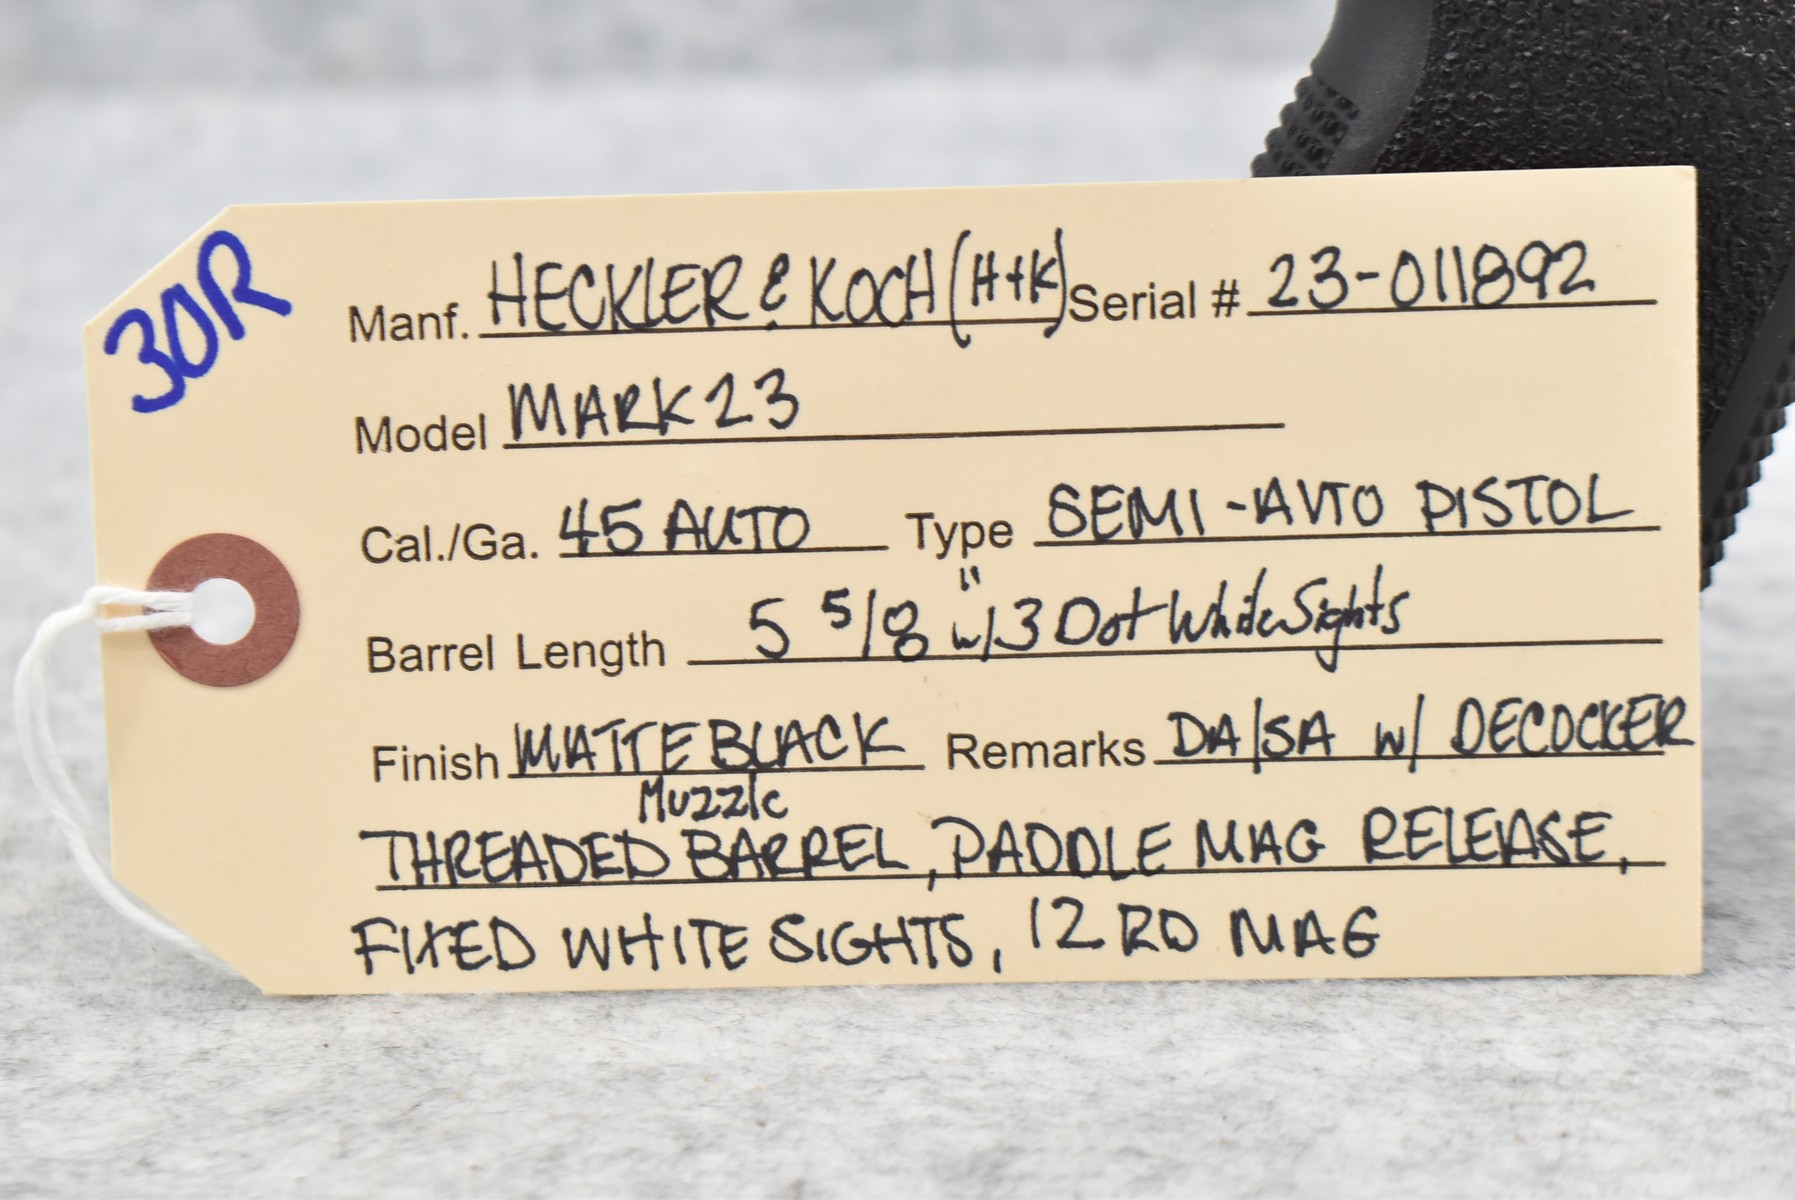 30R
Manf. HECKLER & KOCH (H+K) Serial # 23-011892
Model MARK 23
Cal./Ga. 45 AUTO Type SEMI-AUTO PISTOL
Barrel Length 5 5/8" w/ 3 Dot White Sights
Finish MATTE BLACK Remarks DA/SA w/ DECOCKER
Muzzle
THREADED BARREL, PADDLE MAG RELEASE,
FIXED WHITE SIGHTS, 12 RD MAG